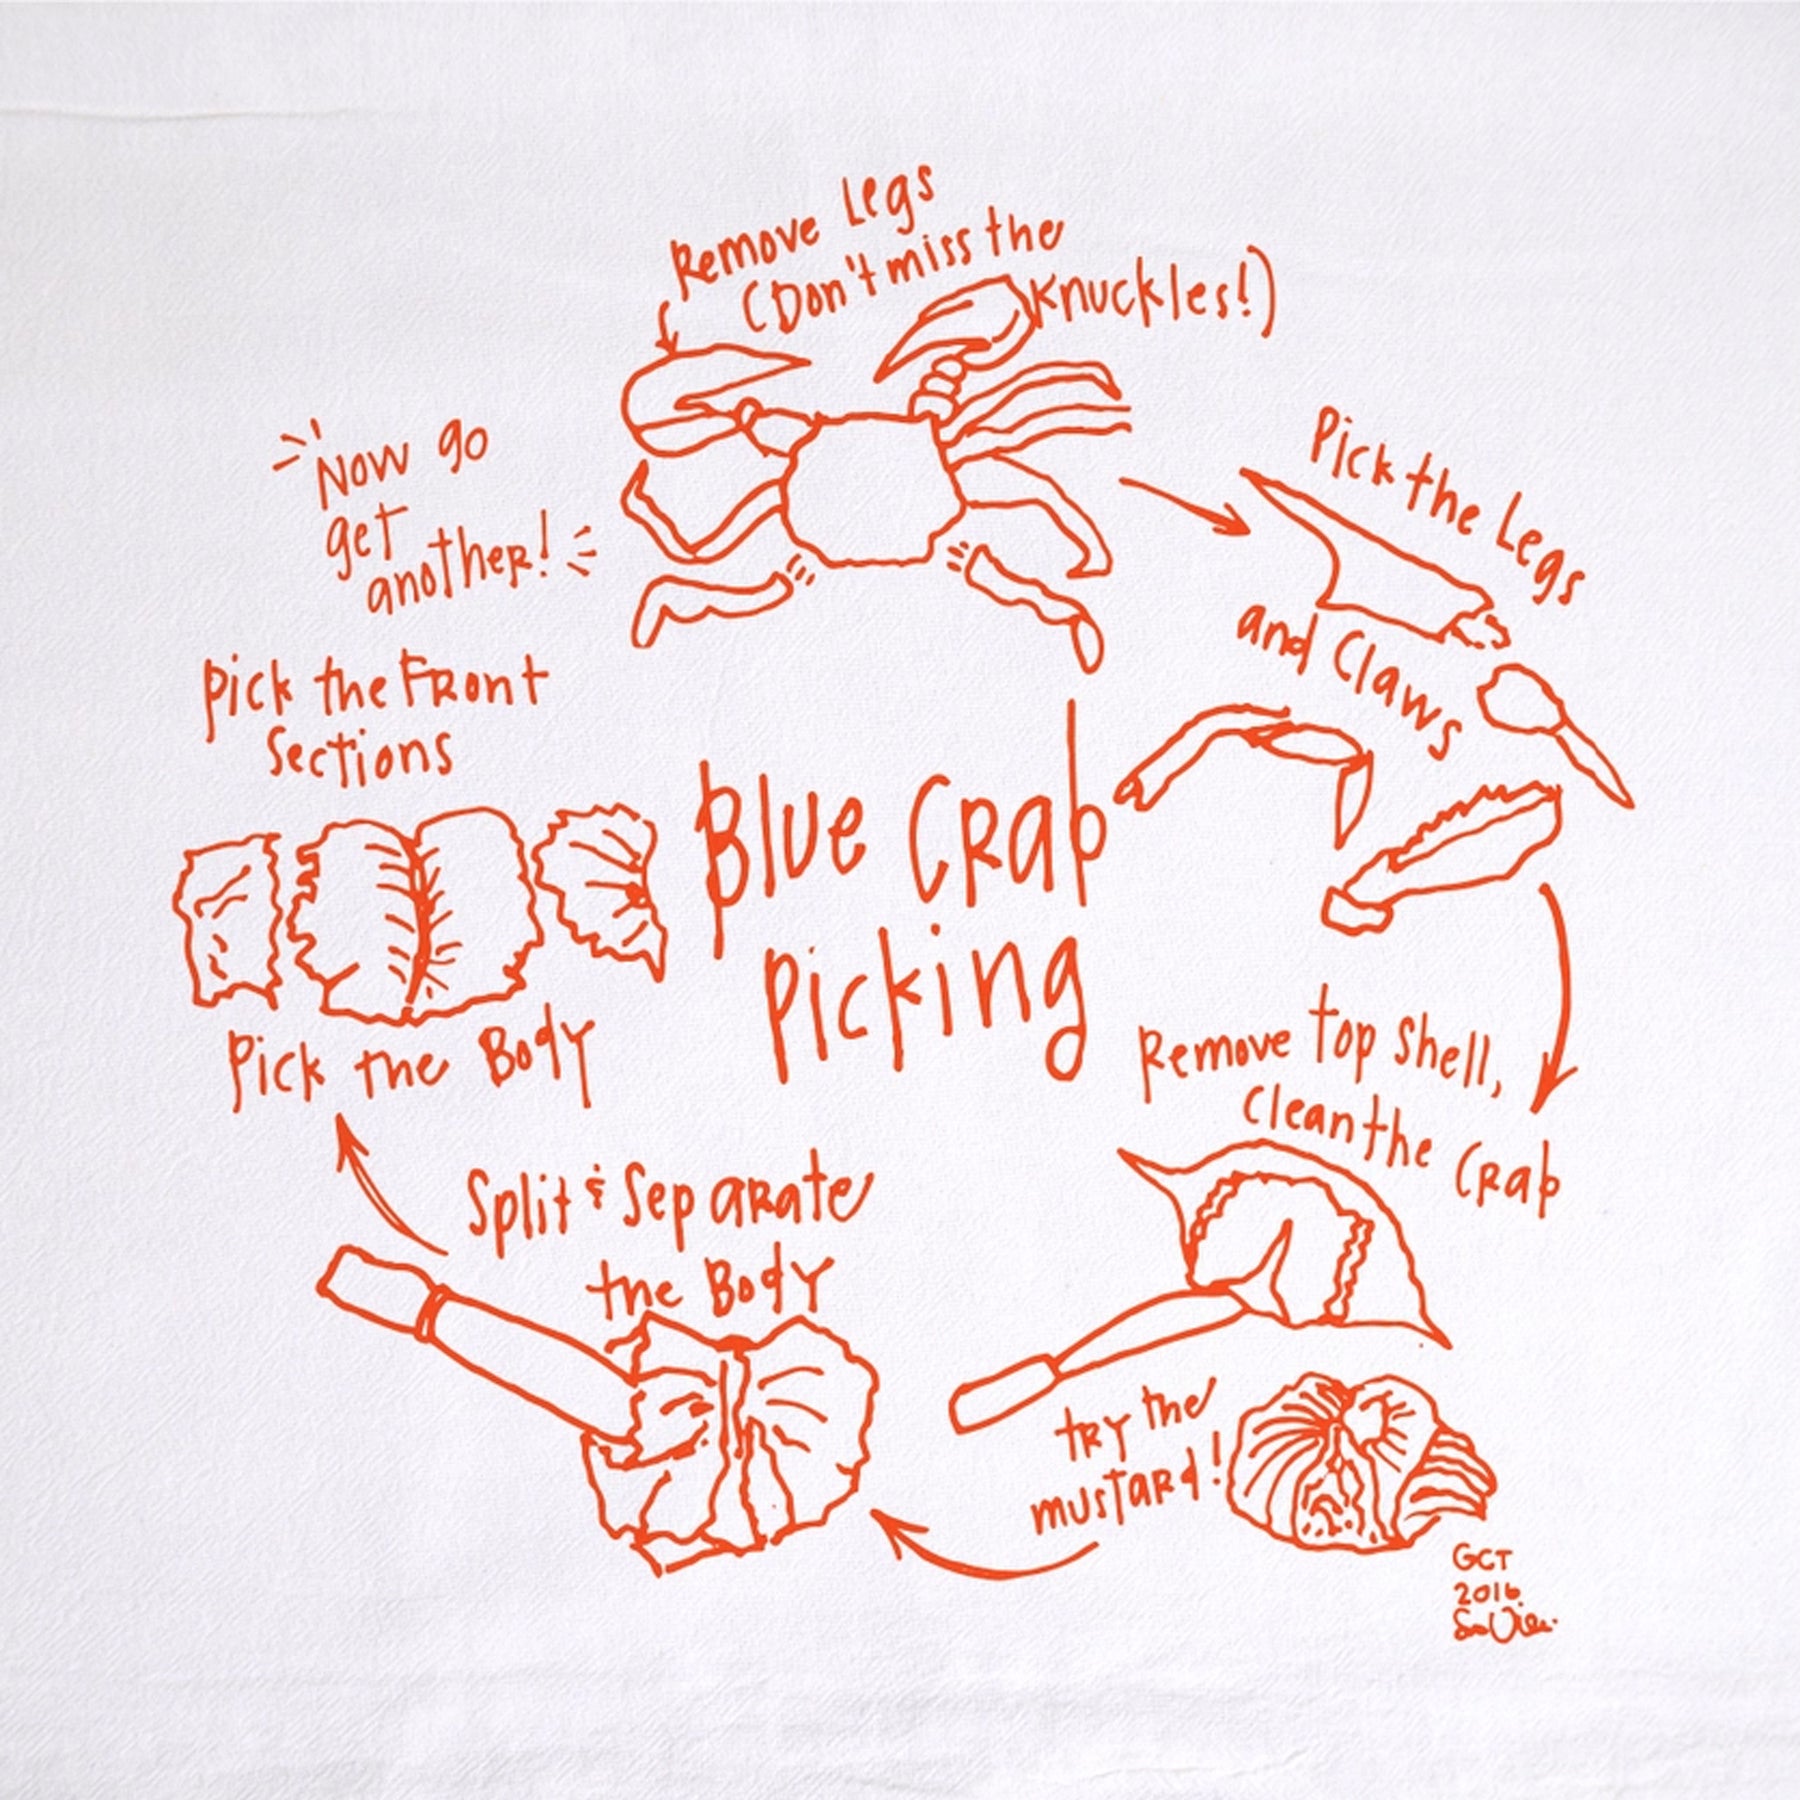 Remove Legs
(Don't miss the
Knuckles!)
Pick the Legs
and Claws
Remove top shell,
clean the Crab
try the
mustard!
Split & Separate
the Body
Pick the Body
Pick the Front
Sections
Now go
get
another!
Blue Crab
Picking
GCT
2016